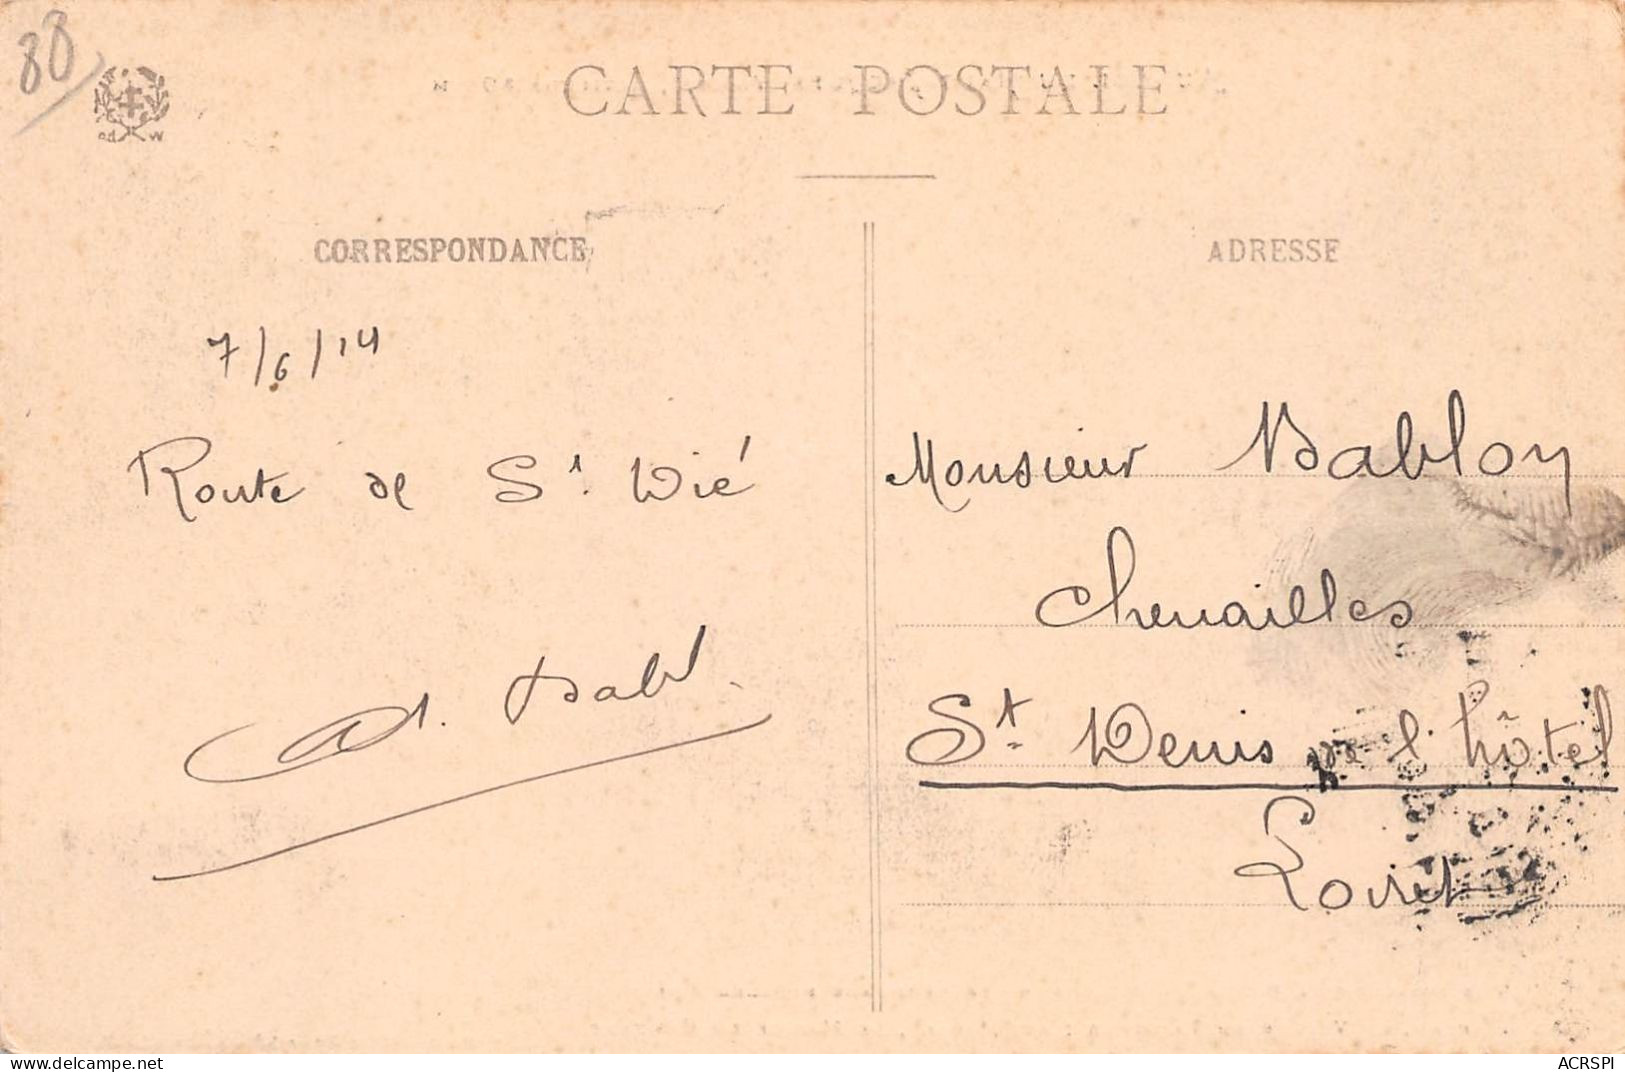 88
CARTE POSTALE
ed W
CORRESPONDANCE
ADRESSE
7/6/14
Route de St. Dié
Monsieur Bablon
Chenailles
St. Denis de l'hôtel
Loiret
www.delcampe.net
ACRSPI